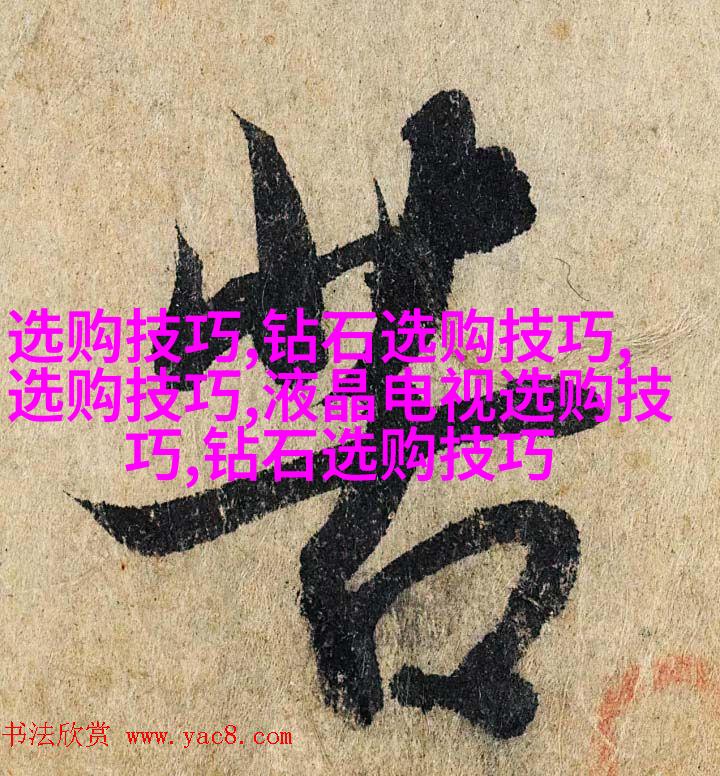 苦
选购技巧,钻石选购技巧,
选购技巧,液晶电视选购技
巧,钻石选购技巧
书法欣赏 www.yac8.com